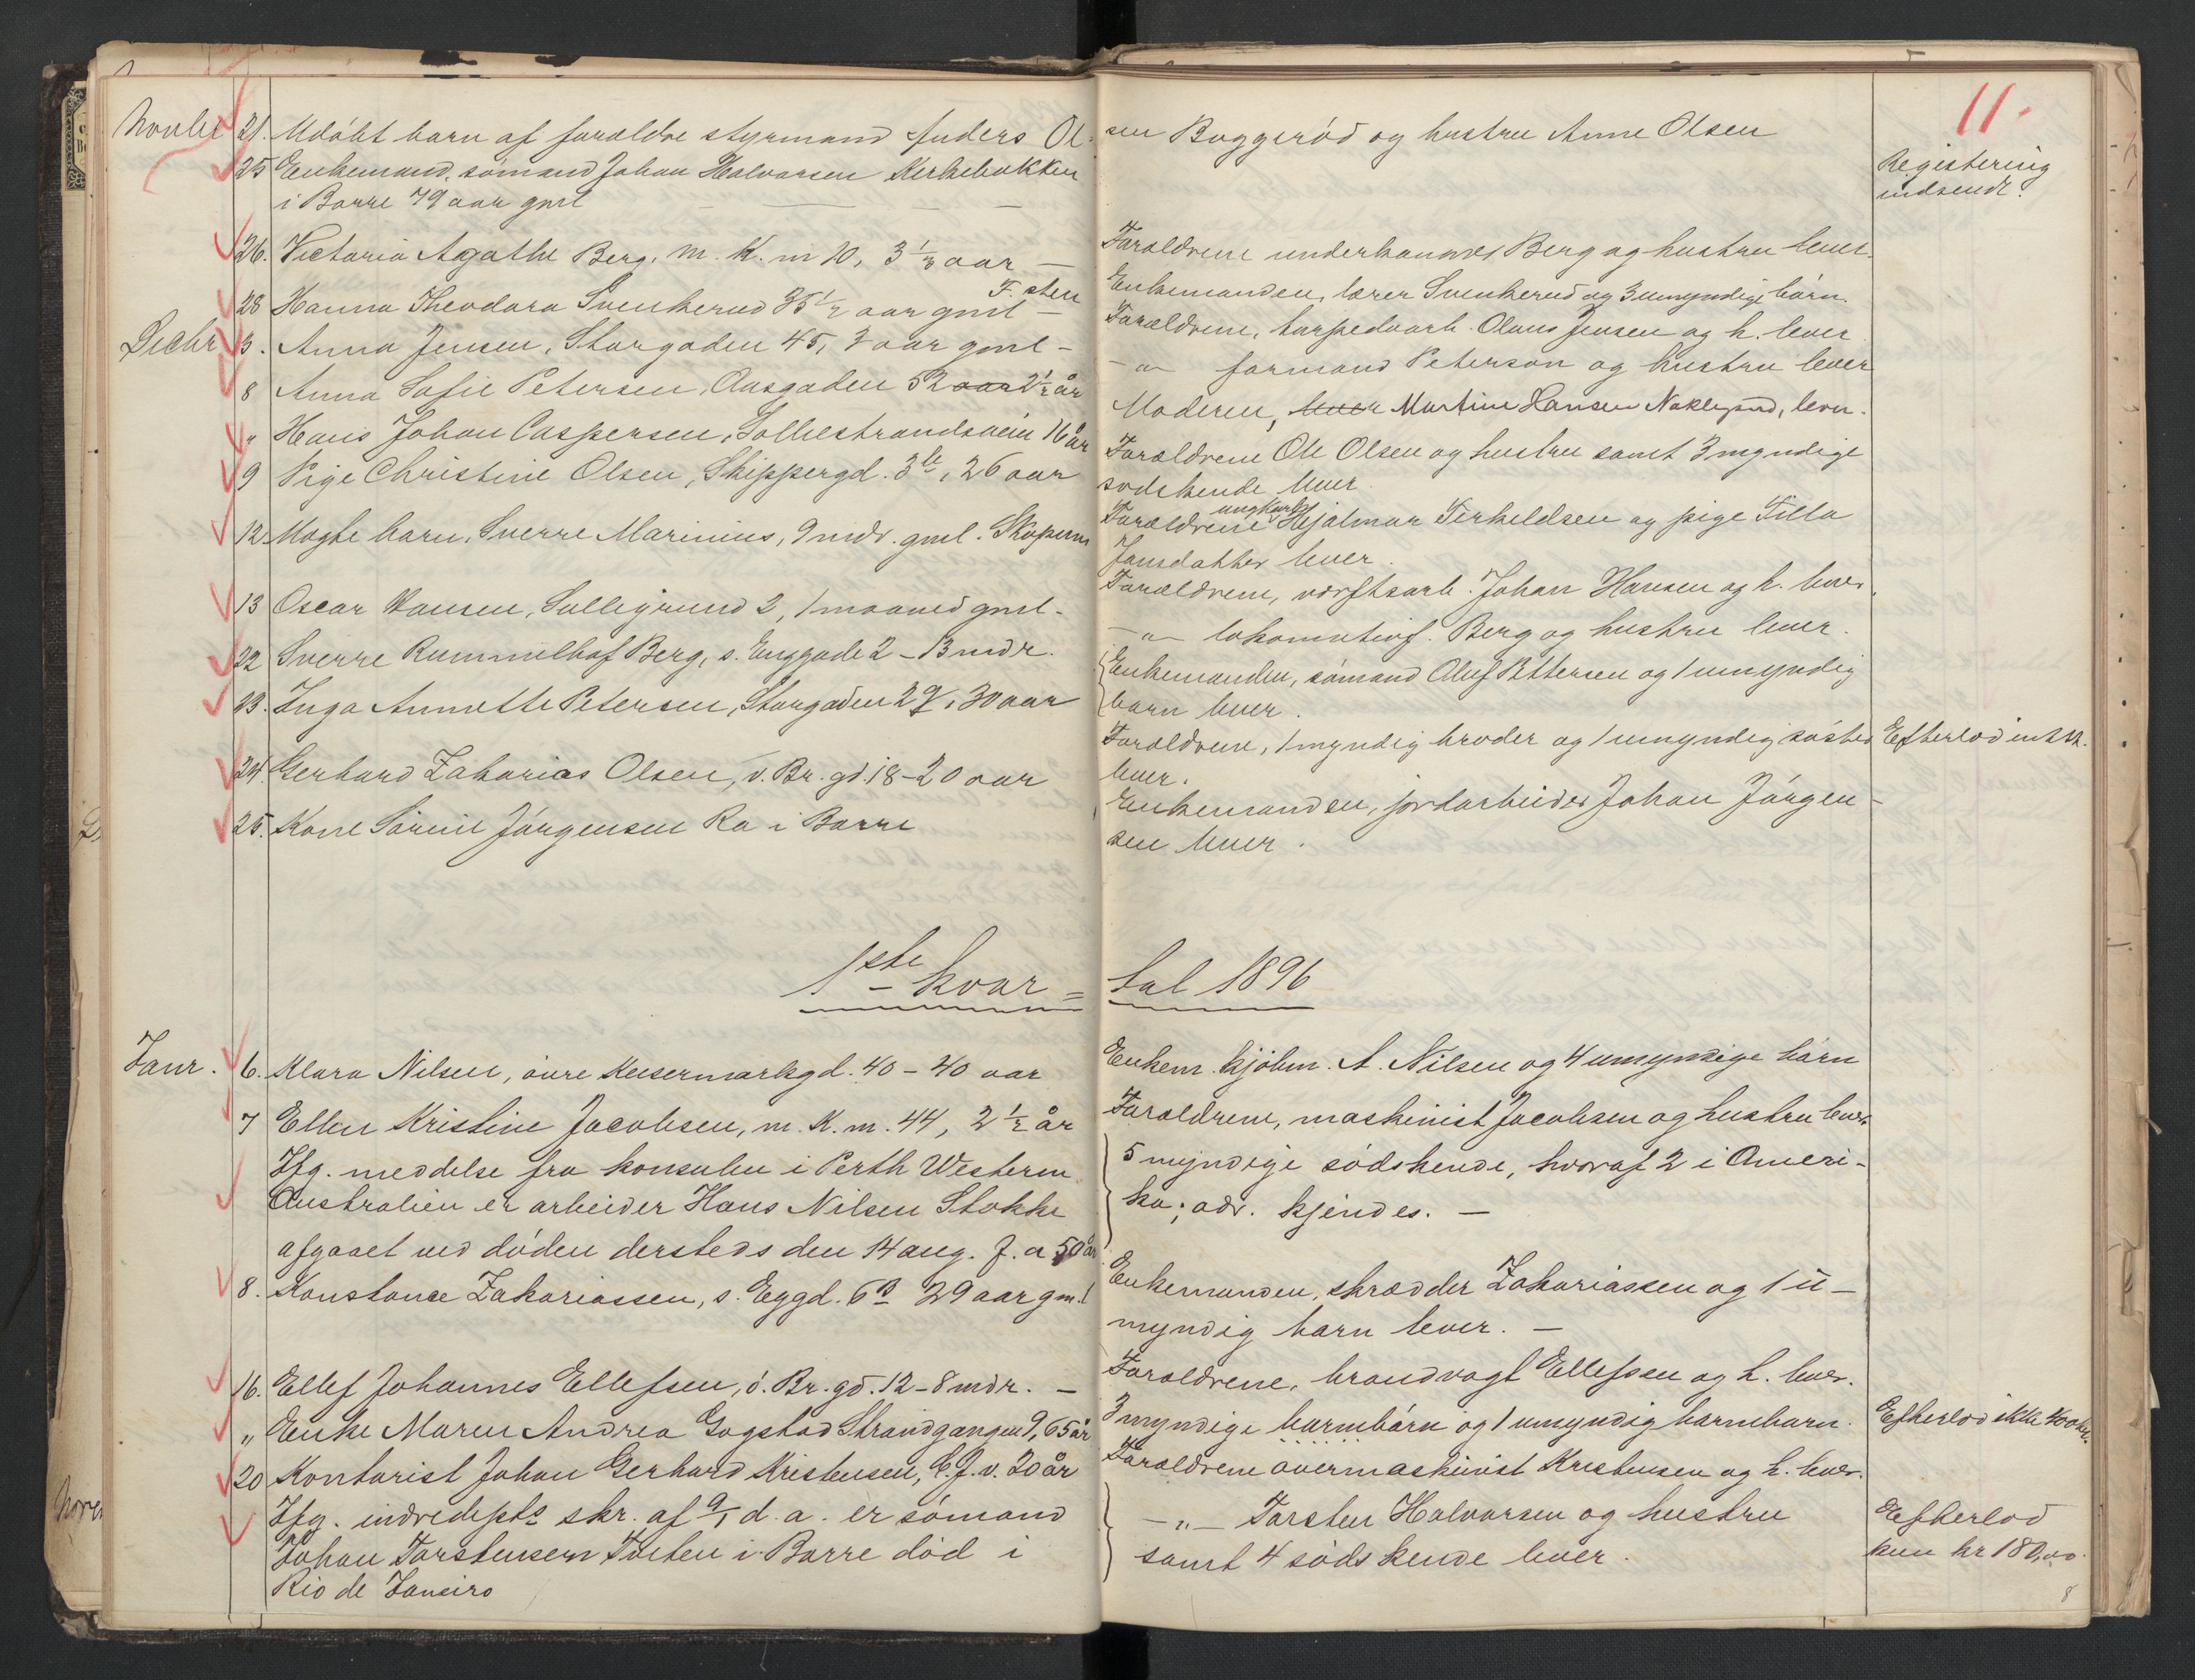 11.
Novbr 21. Udöbt barn af foraldre styrmand Anders Ol-
sen Buggeröd og hustru Anne Olsen
25 Enkemand, sömand Johan Halvorsen Kirkebakken
i Borre 79 aar gml
Registering
indsendt.
26. Victoria Agathe Berg, m. K. m 10, 3 1/3 aar —
Foraldrene underkanoner Berg og hustru lever.
28 Hanna Theodora Svenkerud 35 1/2 aar gml — F. sten
Enkemanden, lærer Svenkerud og 3 umyndige börn.
Decbr 3. Anna Jensen, Storgaden 45, 3 aar gml -
Foraldrene, torpedoarb. Olaus Jensen og h. lever
8 Anna Sofie Petersen, Aasgaden 52 aar 2 1/2 år
-"- formand Peterson og hustru lever
" Hans Johan Caspersen, Solliestrandsveien 16 år
Moderen, lever Martine Hansen Noklegaard, lever.
9 Pige Christine Olsen, Skippergd. 3 b, 26 aar
Foraldrene Ole Olsen og hustru samt 3 myndige
södskende lever
12 Uægte barn, Sverre Marinius, 9 mdr. gml. Skopum
Foraldrene ungkarl Hjalmar Terkeldsen og pige Tilla
Jansdatter lever.
13 Oscar Hansen, Solliegrund 2, 1 maaned gml.
Foraldrene, værftsarb. Johan Hansen og h. lever.
22 Sverre Rummelhof Berg, s. Enggade 2 - 13 mdr.
-"- lokomotivf. Berg og hustru lever.
23. Inga Annette Petersen, Storgaden 29, 30 aar
Enkemanden, sömand Oluf Pettersen og 1 umyndig
barn lever.
24. Gerhard Zakarias Olsen, v. Br. gd. 18 - 20 aar
Foraldrene, 1 myndig broder og 1 umyndig söster
lever.
Efterlod intet.
25. Kone Sörine Jörgensen Ra i Borre
Enkemanden, jordarbeider Johan Jörgen-
sen lever.
1ste kvar=tal 1896
Janr. 6. Klara Nilsen, övre Keisermarksgd. 40 - 40 aar
Enkem. kjöbm. A. Nilsen og 4 umyndige börn
7 Ellen Kristine Jacobsen, m. K. m. 44, 2 1/2 år
Foraldrene, maskinist Jacobsen og hustru lever.
Ifg. meddelse fra konsulen i Perth Western
Australien er arbeider Hans Nilsen Stokke
afgaaet ved döden dersteds den 14 aug. f. a 50 år
5 myndige södskende, hvoraf 2 i Ameri-
ka; adr. kjendes. —
8. Konstance Zakariassen, s. Eggd. 6 B 29 aar gml
Enkemanden, skrædder Zakariassen og 1 u-
myndig barn lever. —
16. Ellef Johannes Ellefsen, ö. Br. gd. 12 - 8 mdr. —
Foraldrene, brandvagt Ellefsen og h. lever.
" Enke Maren Andrea Gogstad Strandgangen 9, 65 år
3 myndige barnebörn og 1 umyndig barnebarn.
Efterlod ikke 400 kr.
20 Kontorist Johan Gerhard Kristensen, C. J. v. 20 år
Foraldrene overmaskinist Kristensen og h. lever.
Ifg. indredepts skr. af 9/1 d. a. er sömand
Johan Torstensen Toften i Borre död i
Rio de Janeiro
-"- Torsten Halvorsen og hustru
samt 4 södskende lever.
Efterlod
kun kr 180,00.
8